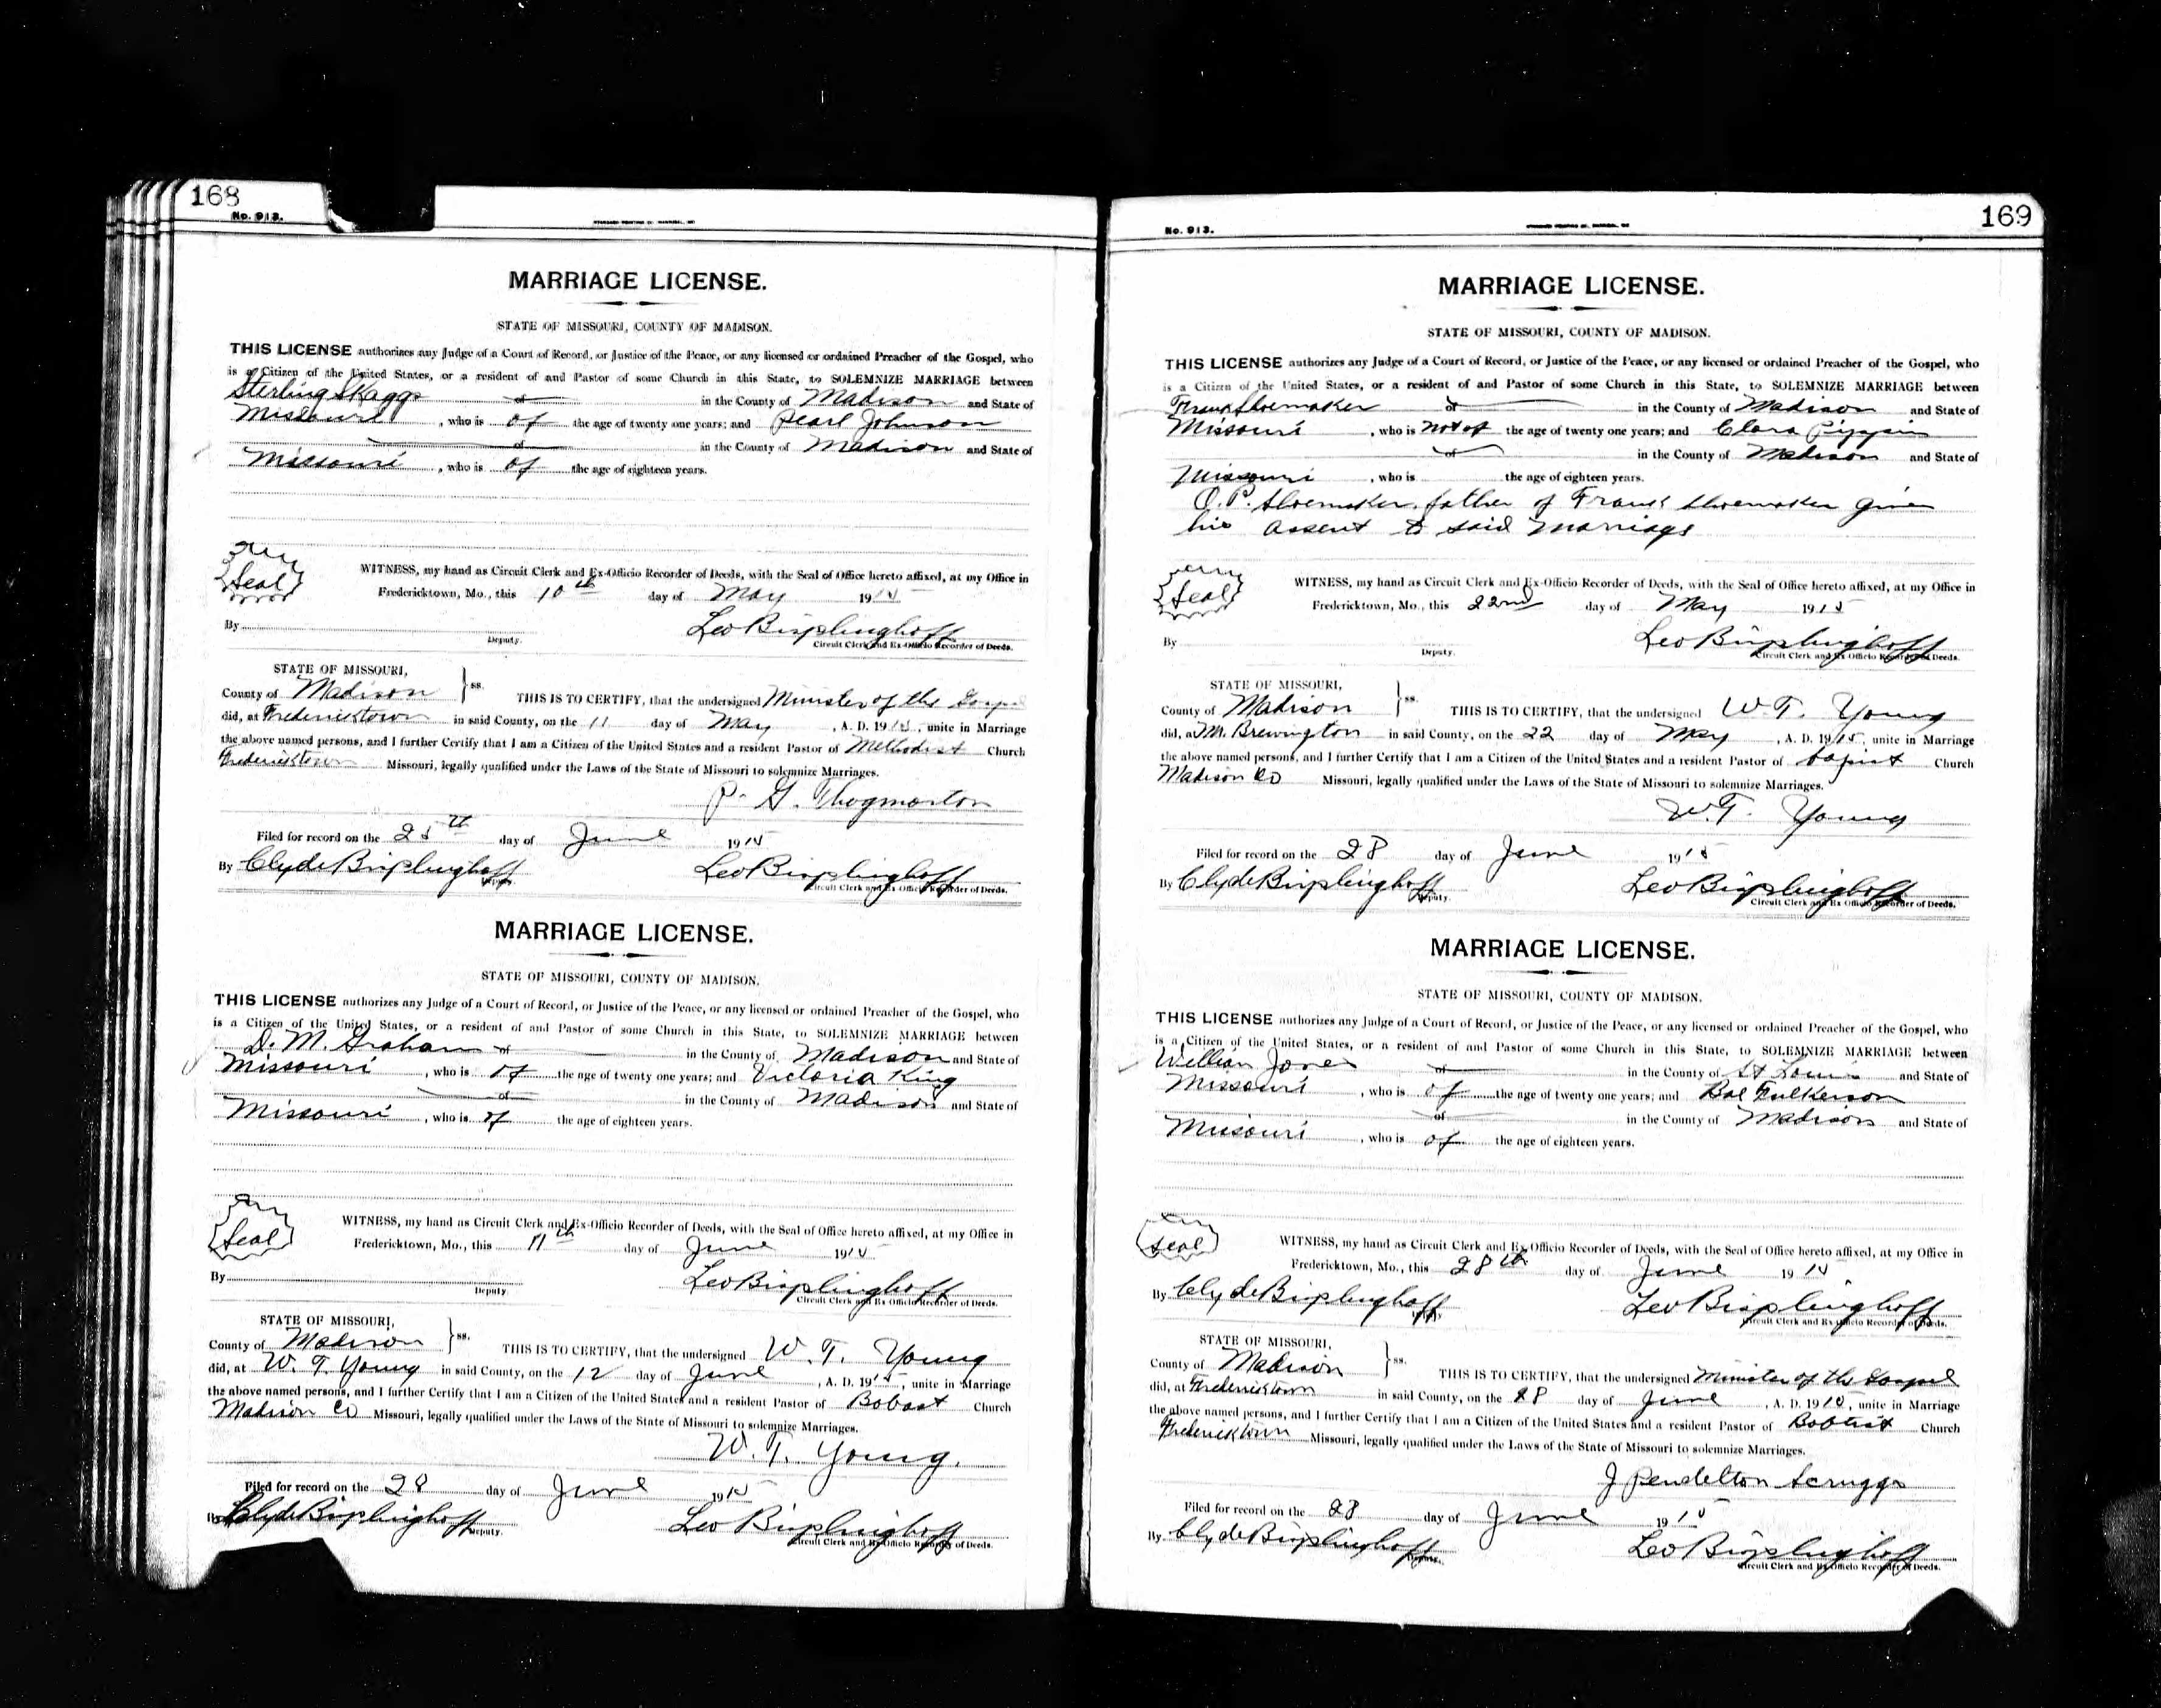 168
No. 913.
MARRIAGE LICENSE.
STATE OF MISSOURI, COUNTY OF MADISON.
THIS LICENSE authorizes any Judge of a Court of Record, or Justice of the Peace, or any licensed or ordained Preacher of the Gospel, who
is a Citizen of the United States, or a resident of and Pastor of some Church in this State, to SOLEMNIZE MARRIAGE between
Sterling Skaggs of in the County of Madison and State of
Missouri, who is of the age of twenty one years; and Pearl Johnson
of in the County of Madison and State of
Missouri, who is of the age of eighteen years.
Seal
WITNESS, my hand as Circuit Clerk and Ex-Officio Recorder of Deeds, with the Seal of Office hereto affixed, at my Office in
Fredericktown, Mo., this 10th day of May 1915
By Deputy. Leo Bisplinghoff
Circuit Clerk and Ex-Officio Recorder of Deeds.
STATE OF MISSOURI,
County of Madison } ss. THIS IS TO CERTIFY, that the undersigned Minister of the Gospel
did, at Fredericktown in said County, on the 11 day of May, A. D. 1915, unite in Marriage
the above named persons, and I further Certify that I am a Citizen of the United States and a resident Pastor of Methodist Church
Fredericktown Missouri, legally qualified under the Laws of the State of Missouri to solemnize Marriages.
P. G. Thogmorton
Filed for record on the 25th day of June 1915
By Clyde Bisplinghoff Deputy. Leo Bisplinghoff
Circuit Clerk and Ex Officio Recorder of Deeds.
MARRIAGE LICENSE.
STATE OF MISSOURI, COUNTY OF MADISON.
THIS LICENSE authorizes any Judge of a Court of Record, or Justice of the Peace, or any licensed or ordained Preacher of the Gospel, who
is a Citizen of the United States, or a resident of and Pastor of some Church in this State, to SOLEMNIZE MARRIAGE between
D. M. Graham of in the County of Madison and State of
Missouri, who is of the age of twenty one years; and Victoria King
of in the County of Madison and State of
Missouri, who is of the age of eighteen years.
Seal
WITNESS, my hand as Circuit Clerk and Ex-Officio Recorder of Deeds, with the Seal of Office hereto affixed, at my Office in
Fredericktown, Mo., this 11th day of June 1915
By Deputy. Leo Bisplinghoff
Circuit Clerk and Ex Officio Recorder of Deeds.
STATE OF MISSOURI,
County of Madison } ss. THIS IS TO CERTIFY, that the undersigned W. T. Young
did, at W. T. Young in said County, on the 12 day of June, A. D. 1915, unite in Marriage
the above named persons, and I further Certify that I am a Citizen of the United States and a resident Pastor of Bobast Church
Madison Co Missouri, legally qualified under the Laws of the State of Missouri to solemnize Marriages.
W. T. Young.
Filed for record on the 28 day of June 1915
By Clyde Bisplinghoff Deputy. Leo Bisplinghoff
Circuit Clerk and Ex Officio Recorder of Deeds.
169
No. 913.
MARRIAGE LICENSE.
STATE OF MISSOURI, COUNTY OF MADISON.
THIS LICENSE authorizes any Judge of a Court of Record, or Justice of the Peace, or any licensed or ordained Preacher of the Gospel, who
is a Citizen of the United States, or a resident of and Pastor of some Church in this State, to SOLEMNIZE MARRIAGE between
Frank Shoemaker of in the County of Madison and State of
Missouri, who is not of the age of twenty one years; and Clara Pippin
of in the County of Madison and State of
Missouri, who is the age of eighteen years.
O. P. Shoemaker, father of Frank Shoemaker given
his assent to said marriage
Seal
WITNESS, my hand as Circuit Clerk and Ex-Officio Recorder of Deeds, with the Seal of Office hereto affixed, at my Office in
Fredericktown, Mo., this 22nd day of May 1915
By Deputy. Leo Bisplinghoff
Circuit Clerk and Ex Officio Recorder of Deeds.
STATE OF MISSOURI,
County of Madison } ss. THIS IS TO CERTIFY, that the undersigned W. T. Young
did, at M. Brewington in said County, on the 22 day of May, A. D. 1915, unite in Marriage
the above named persons, and I further Certify that I am a Citizen of the United States and a resident Pastor of bapist Church
Madison Co Missouri, legally qualified under the Laws of the State of Missouri to solemnize Marriages.
W. T. Young
Filed for record on the 28 day of June 1915
By Clyde Bisplinghoff Deputy. Leo Bisplinghoff
Circuit Clerk and Ex Officio Recorder of Deeds.
MARRIAGE LICENSE.
STATE OF MISSOURI, COUNTY OF MADISON.
THIS LICENSE authorizes any Judge of a Court of Record, or Justice of the Peace, or any licensed or ordained Preacher of the Gospel, who
is a Citizen of the United States, or a resident of and Pastor of some Church in this State, to SOLEMNIZE MARRIAGE between
William Jones of in the County of St Louis and State of
Missouri, who is of the age of twenty one years; and Bal Fulkerson
of in the County of Madison and State of
Missouri, who is of the age of eighteen years.
Seal
WITNESS, my hand as Circuit Clerk and Ex Officio Recorder of Deeds, with the Seal of Office hereto affixed, at my Office in
Fredericktown, Mo., this 28th day of June 1915
By Clyde Bisplinghoff Deputy. Leo Bisplinghoff
Circuit Clerk and Ex Officio Recorder of Deeds.
STATE OF MISSOURI,
County of Madison } ss. THIS IS TO CERTIFY, that the undersigned Minister of the Gospel
did, at Fredericktown in said County, on the 28 day of June, A. D. 1915, unite in Marriage
the above named persons, and I further Certify that I am a Citizen of the United States and a resident Pastor of Babtist Church
Fredericktown Missouri, legally qualified under the Laws of the State of Missouri to solemnize Marriages.
J Pendelton Scruggs
Filed for record on the 28 day of June 1915
By Clyde Bisplinghoff Deputy. Leo Bisplinghoff
Circuit Clerk and Ex Officio Recorder of Deeds.